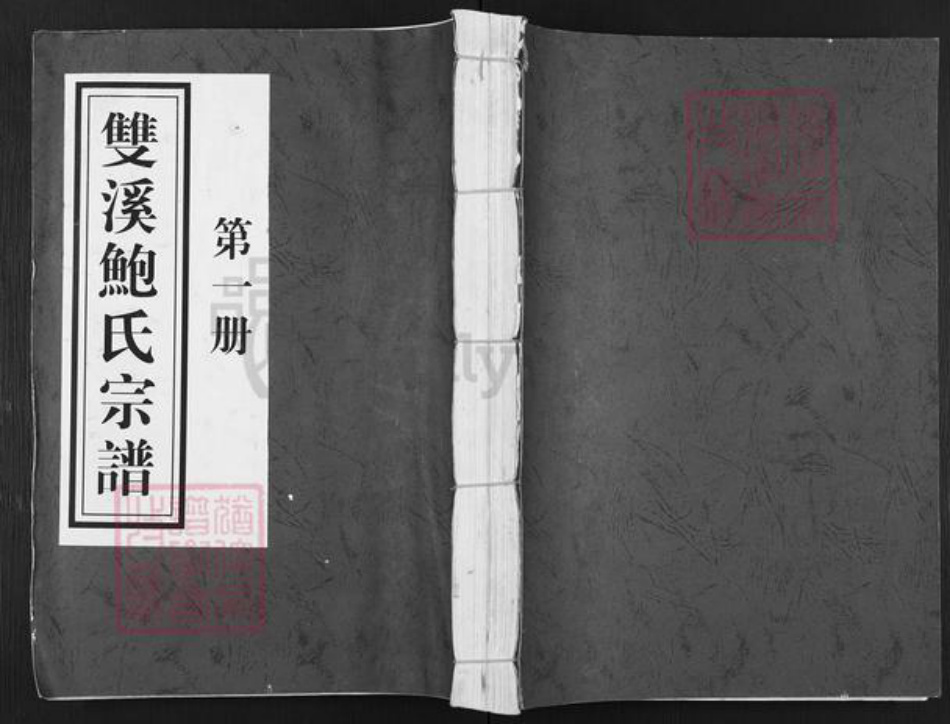 雙溪鮑氏宗譜
第一册